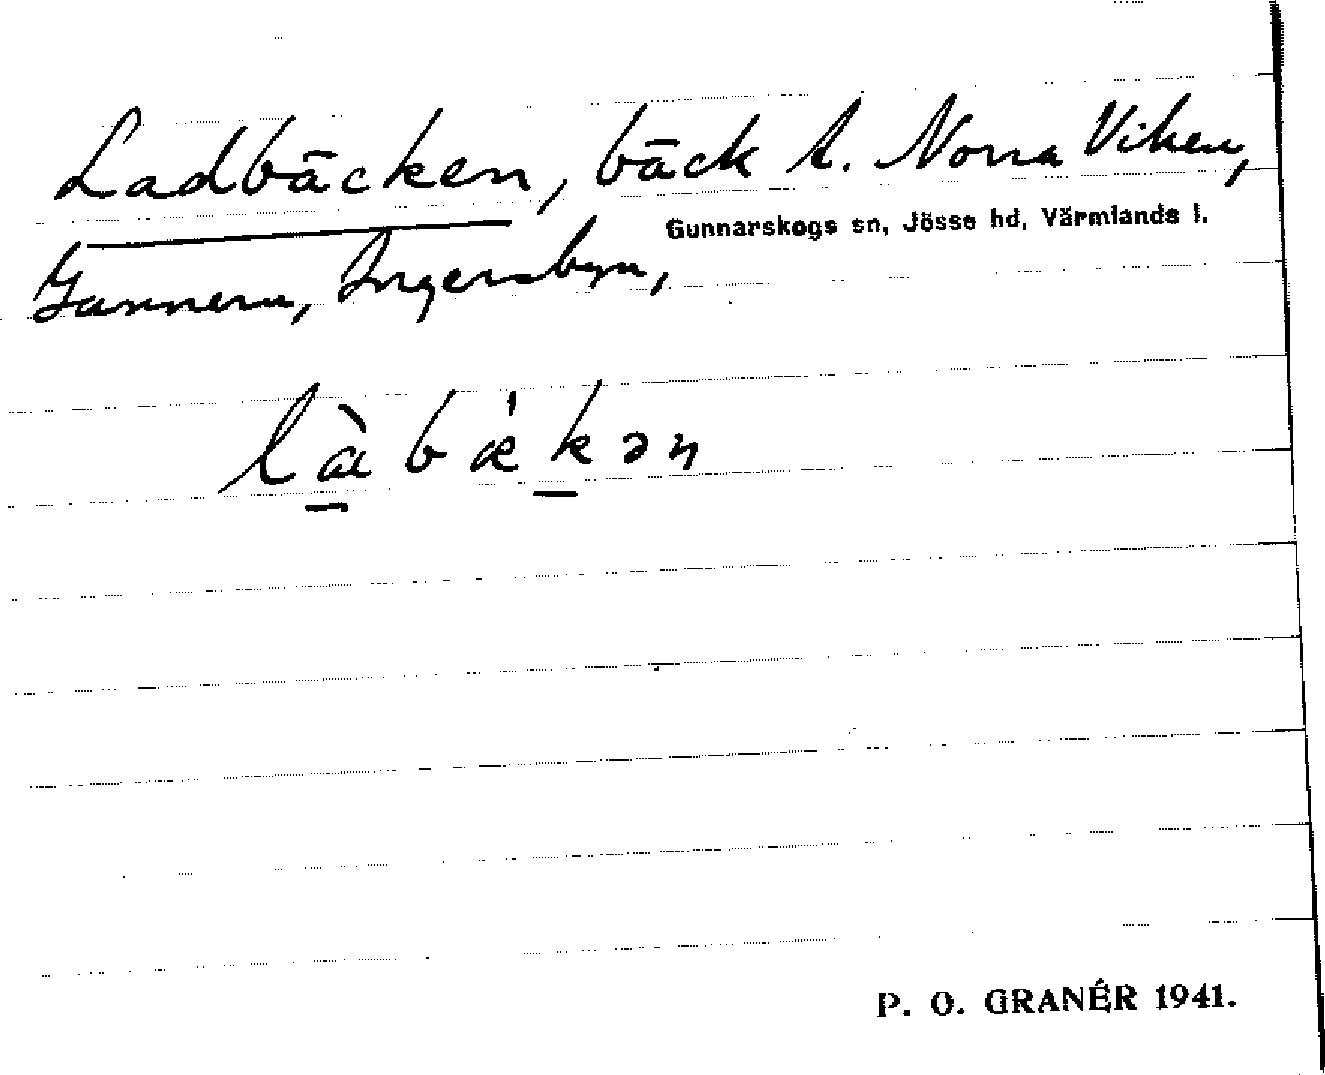 Ladbäcken, bäck t. Norra Viken,
Gunnarskogs sn, Jösse hd, Värmlands l.
Gunnern, Ingersbyn,
là bǽkən
P. O. GRANÉR 1941.